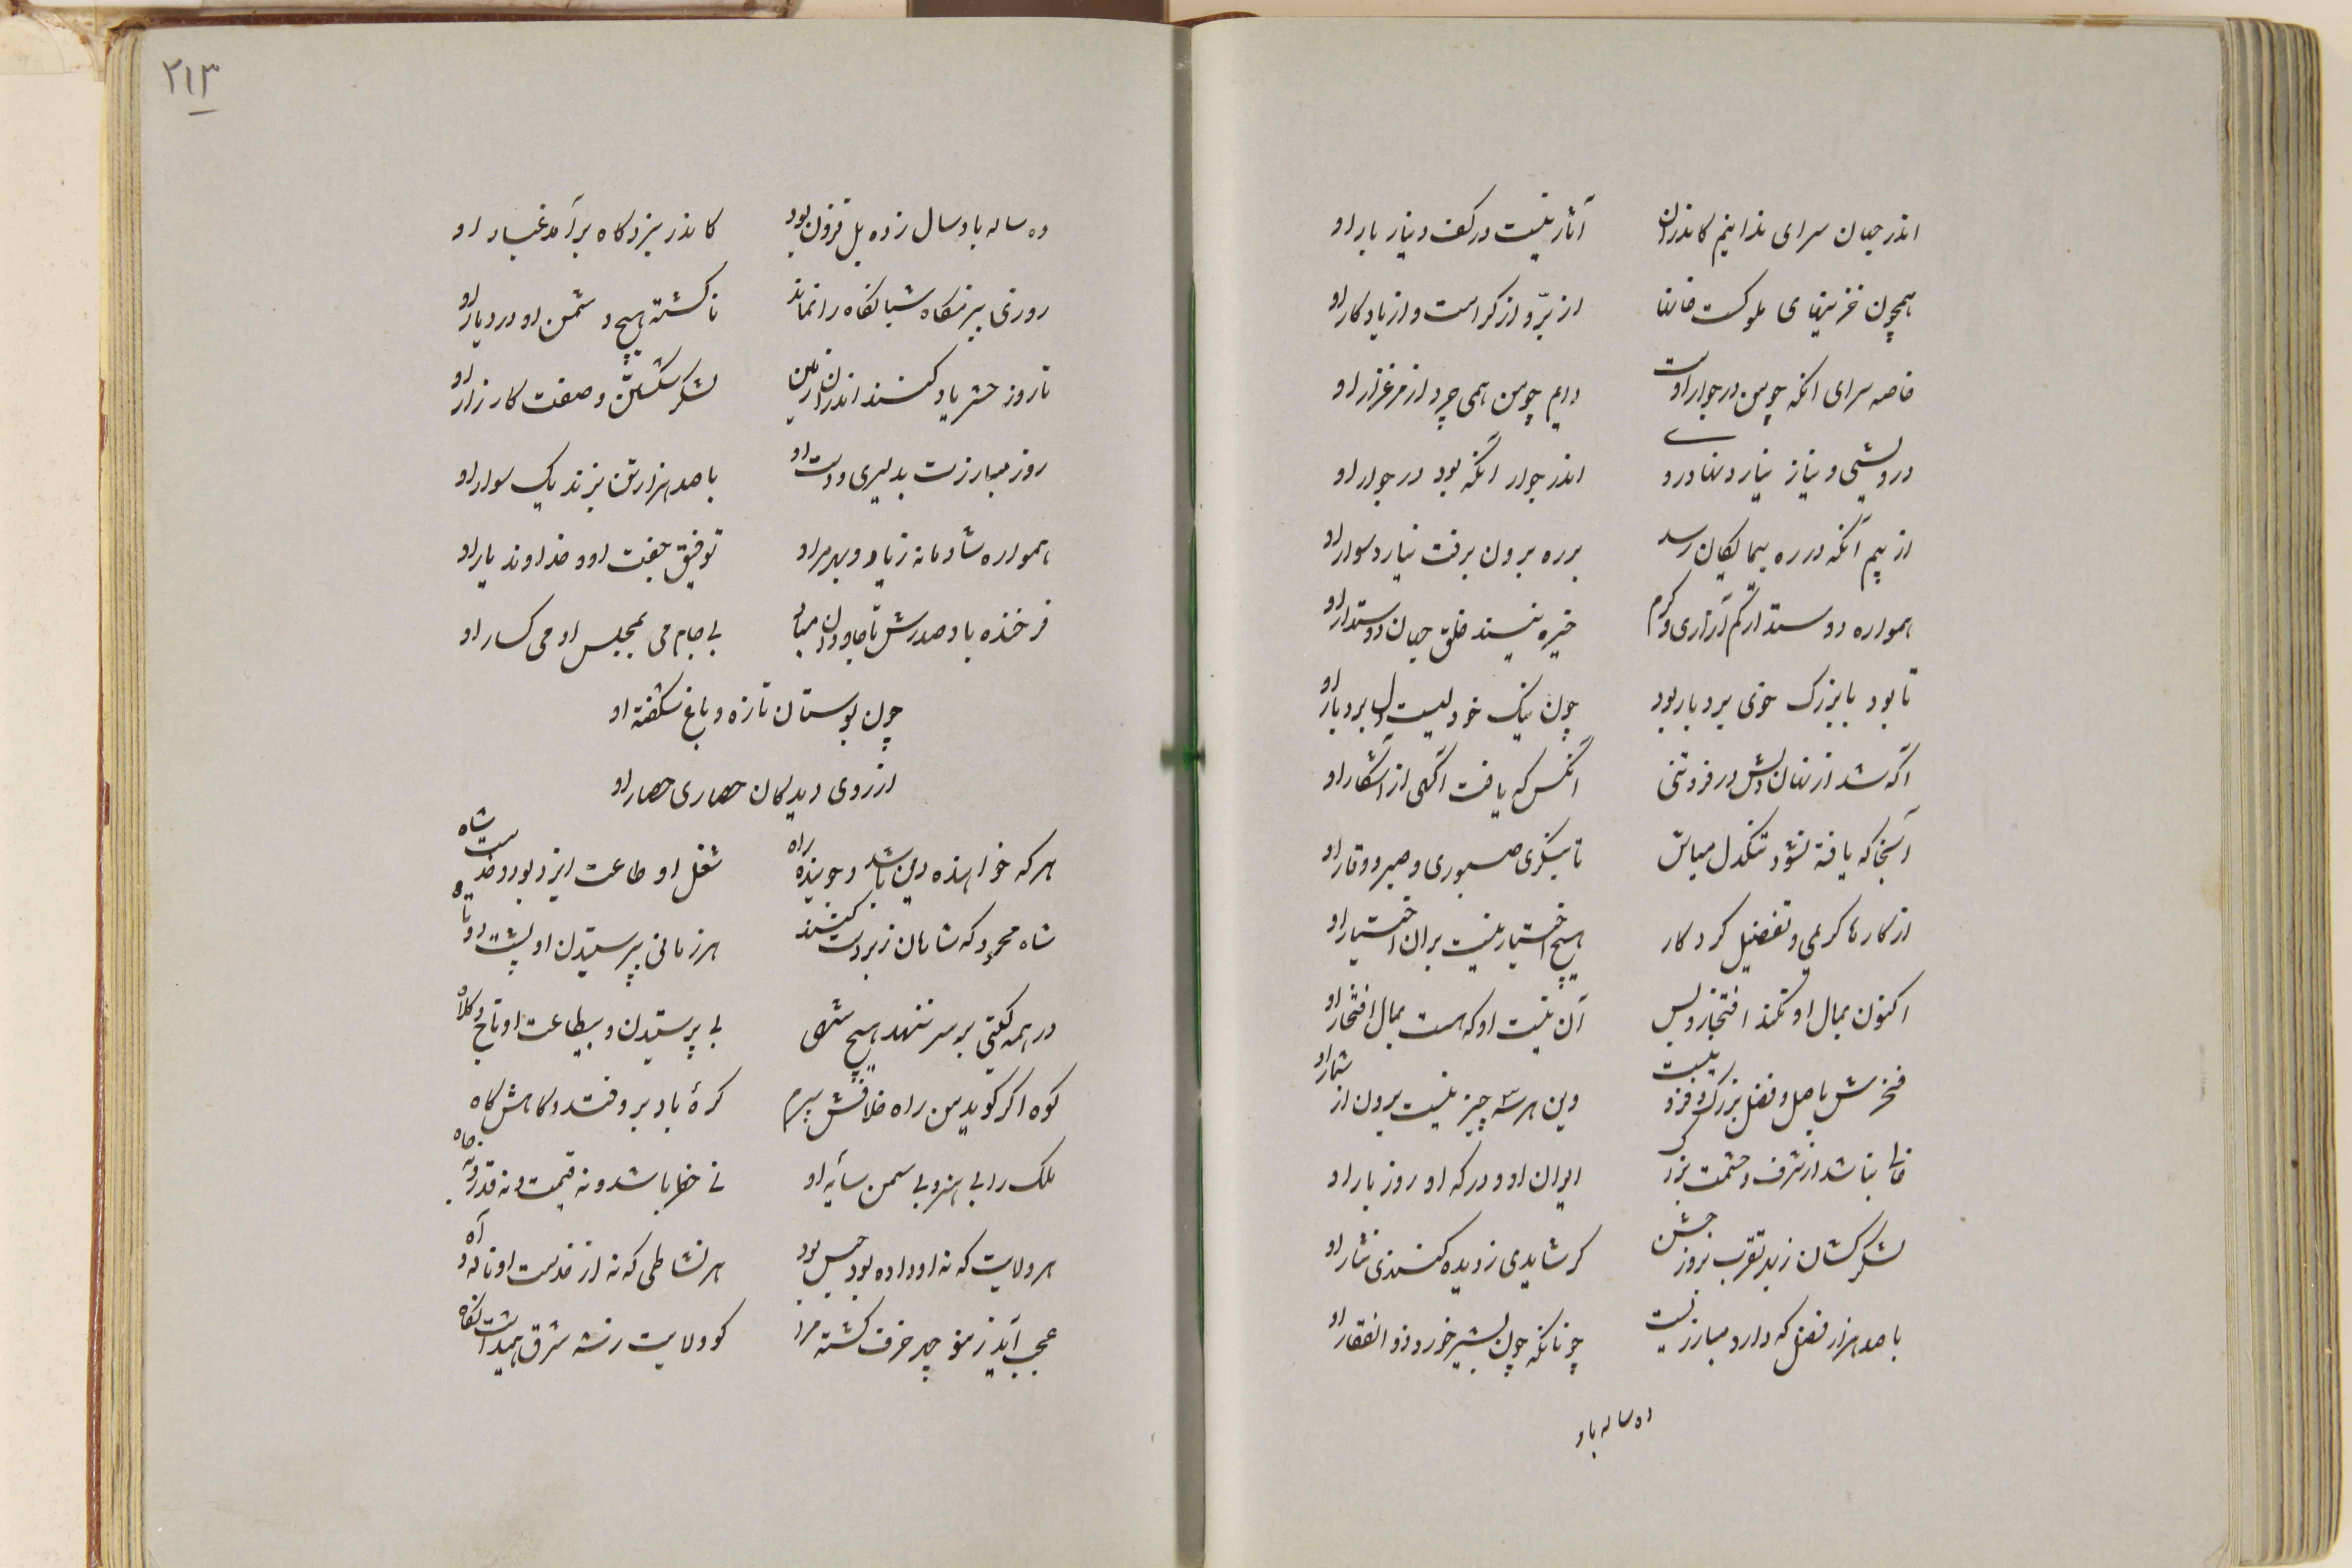 اندر جهان سرای ندانیم کاندران آثار نیست در کف دینار بار او
همچون خزینهای ملوکست خانها از برّ و از کرامت و از یادکار او
خاصه سرای انکه چو من در جوار اوست دایم چو من همی چرد از مرغزار او
درویشی و نیاز نیارد نهاد رو اندر جوار آنکه بود در جوار او
از بیم آنکه در ره بیمایکان رسد بر ره برون برفت نیارد سوار او
همواره دوستدار کم آزاری و کرم خیره نیند خلق جهان دوستدار او
تا بود با بزرک خوی بردبار بود چون نیک خو دلیست دل بردبار او
اکه شد از نهان دلش در فروتنی آنکس که یافت آکهی از آشکار او
آنجا که یافه نشود تنکدل مباش تا بنکری صبوری و صبر و وقار او
از کارها کریمی و تفضیل کردکار هیچ اختیار نیست بران اختیار او
اکنون بمال او نکند افتخار و بس آن نیست او که هست بمال افتخار او
فخرش باصل و فضل بزرک و فزونیست وین هر سه چیز نیست برون از شمار او
خالی نباشد از شرف و حشمت بزرک ایوان او و درکه او روز بار او
لشکر کشان ز بهر تقرب بروز جشن کر شایدی ز دیده کنندی نثار او
با صد هزار فضل که دارد مبارزیست چونانکه چون بشیر خورد ذو الفقار او
ده ساله باد
۲۱۳
ده ساله باد سال زده بل فزون بود کاندر نبردکاه برآمد غبار او
روزی برزمکاه شبانکاه را نماند ناکشته هیچ دشمن او در دیار او
تا روز حشر یاد کنند اندران زمین لشکر شکستن و صفت کارزار او
روز مبارزت بدلیری و دست او با صد هزار تن بزند یک سوار او
همواره شادمانه زیاد و بهر مراد توفیق جفت او و خداوند یار او
فرخنده باد صدرش تا جاودان مباد بی جام می بمجلس او می کسار او
چون بوستان تازه و باغ شکفته او
از روی دیدکان حصاری حصار او
هر که خواهنده دین باشد و جوینده راه شغل او طاعت ایزد بود و خدمت شاه
شاه محمود که شاهان زبردست کنند هر زمانی بپرستیدن او پشت دوتاه
در همه کیتی بر سر ننهد هیچ شهی بی پرستیدن و بیطاعت او تاج و کلاه
کوه اکر کوید من راه خلافش سپرم کرهٔ باد برو فتد و کاهش کاه
ملک را بی هنر و بی سمن سایه او نی خطر باشد و نه قیمت و نه قدر و نه جاه
هر ولایت که نه او داده بود حبس بود هر نشاطی که نه از خدمت او ناله و آه
عجب آید ز منوچهر خرف کشته مرا کو ولایت ز شه شرق همیداشت نکاه